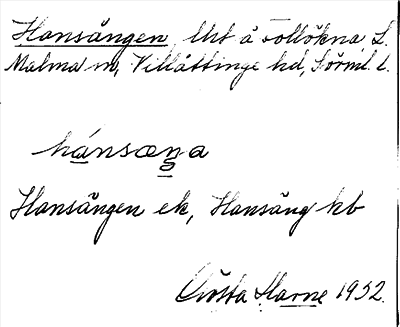 Hansängen Uht å Sollökna L.
Malma sn, Villåttinge hd, Sörml. l.
hánsæŋa
Hansängen ek, Hansäng kb
Gösta Harne 1932.